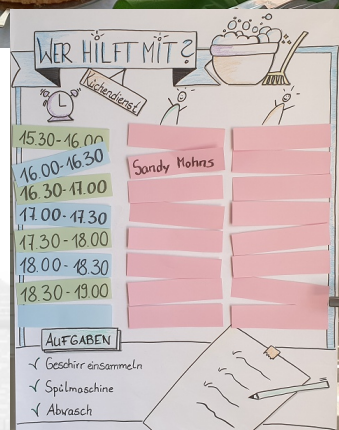 WER HILFT MIT?
Küchendienst
15.30-16.00
16.00-16.30
Sandy Mohns
16.30-17.00
17.00-17.30
17.30-18.00
18.00-18.30
18.30-19.00
AUFGABEN
√ Geschirr einsammeln
√ Spülmaschine
√ Abwasch